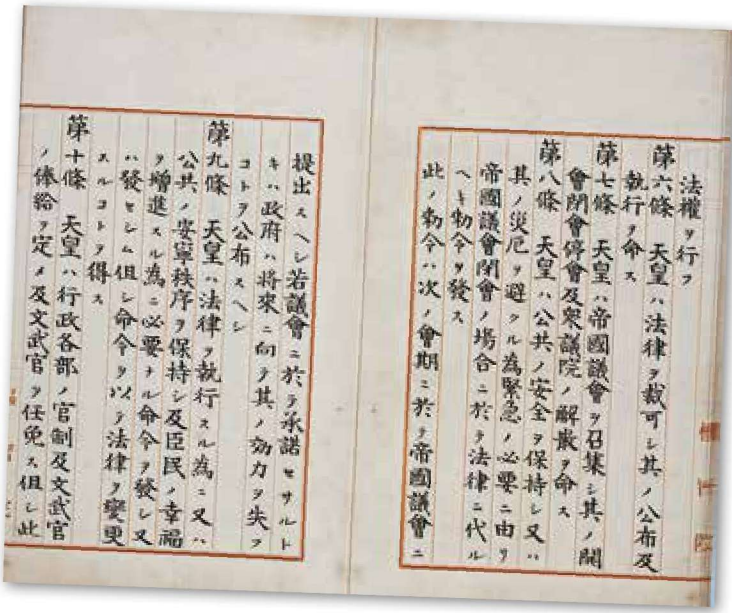 法權ヲ行フ
第六條　天皇ハ法律ヲ裁可シ其ノ公布及
執行ヲ命ス
第七條　天皇ハ帝國議會ヲ召集シ其ノ開
會閉會停會及衆議院ノ解散ヲ命ス
第八條　天皇ハ公共ノ安全ヲ保持シ又ハ
其ノ災厄ヲ避クル為緊急ノ必要ニ由リ
帝國議會閉會ノ場合ニ於テ法律ニ代ル
ヘキ勅令ヲ發ス
此ノ勅令ハ次ノ會期ニ於テ帝國議會ニ
提出スヘシ若議會ニ於テ承諾セサルト
キハ政府ハ將來ニ向テ其ノ効力ヲ失フ
コトヲ公布スヘシ
第九條　天皇ハ法律ヲ執行スル為ニ又ハ
公共ノ安寧秩序ヲ保持シ及臣民ノ幸福
ヲ增進スル為ニ必要ナル命令ヲ發シ又
ハ發セシム但シ命令ヲ以テ法律ヲ變更
スルコトヲ得ス
第十條　天皇ハ行政各部ノ官制及文武官
ノ俸給ヲ定メ及文武官ヲ任免ス但シ此